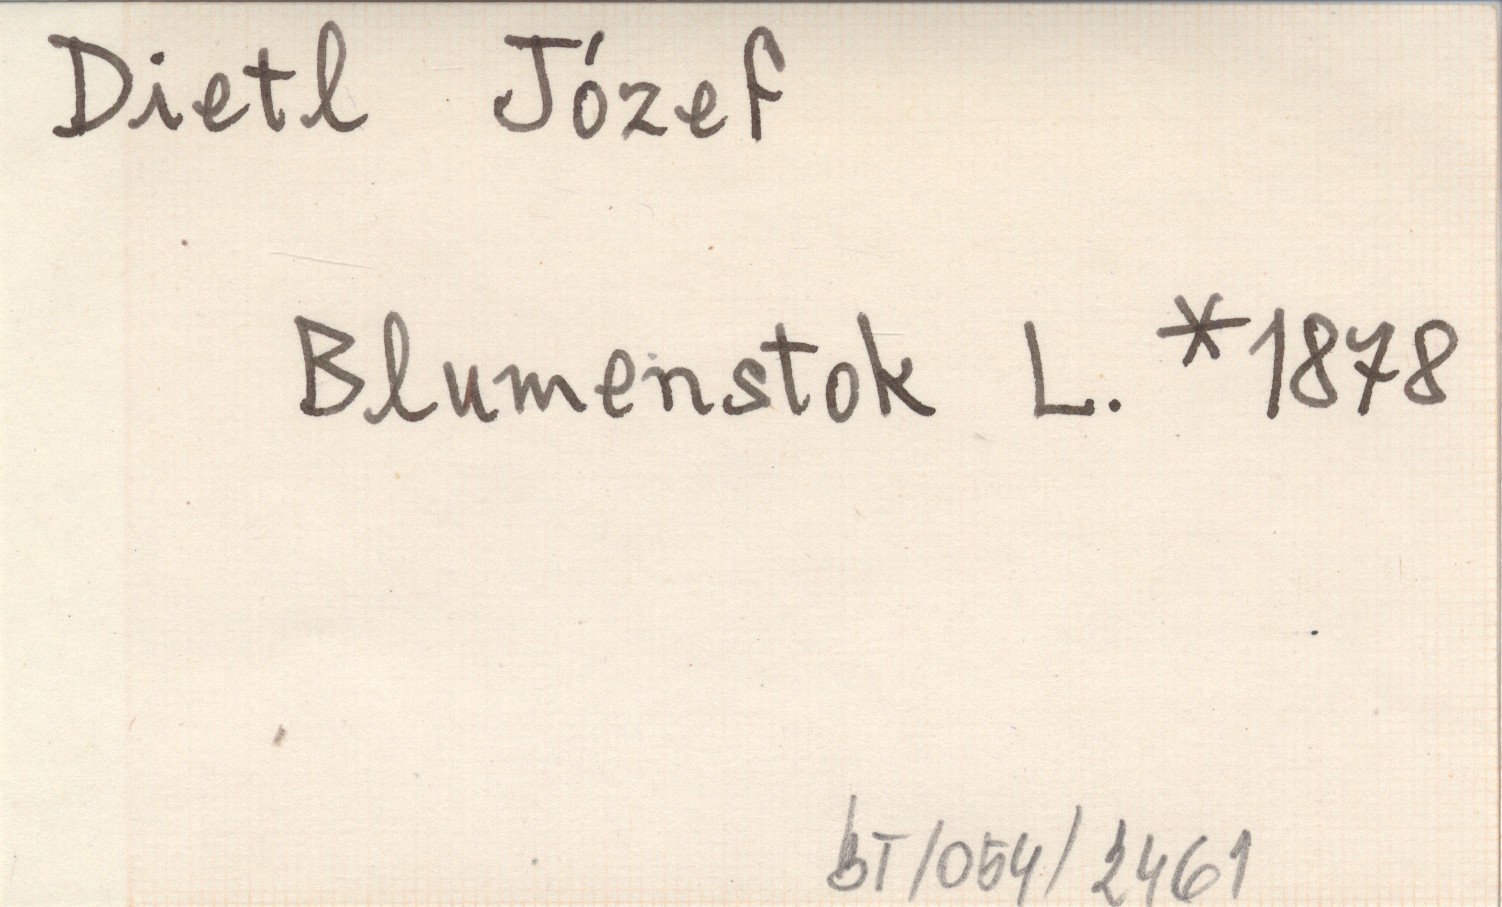 Dietl Józef
Blumenstok L. *1878
bT/054/2461